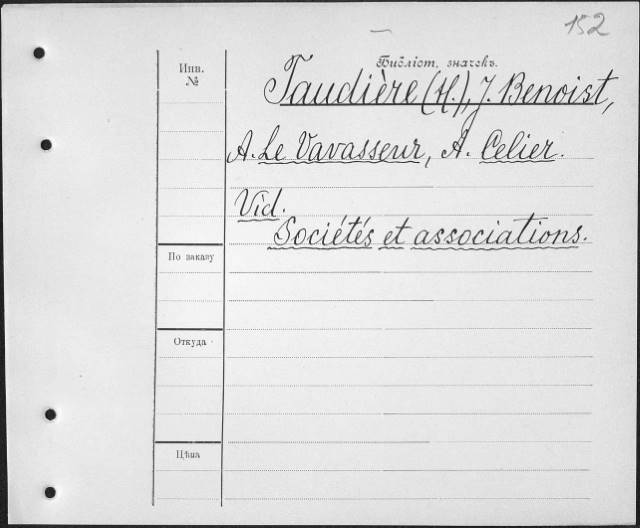 152
Инв.
№
Библіот. значекъ.
Taudière (H.), J. Benoist,
A. Le Vavasseur, A. Celier.
Vid.
Sociétés et associations.
По заказу
Откуда
Цѣна